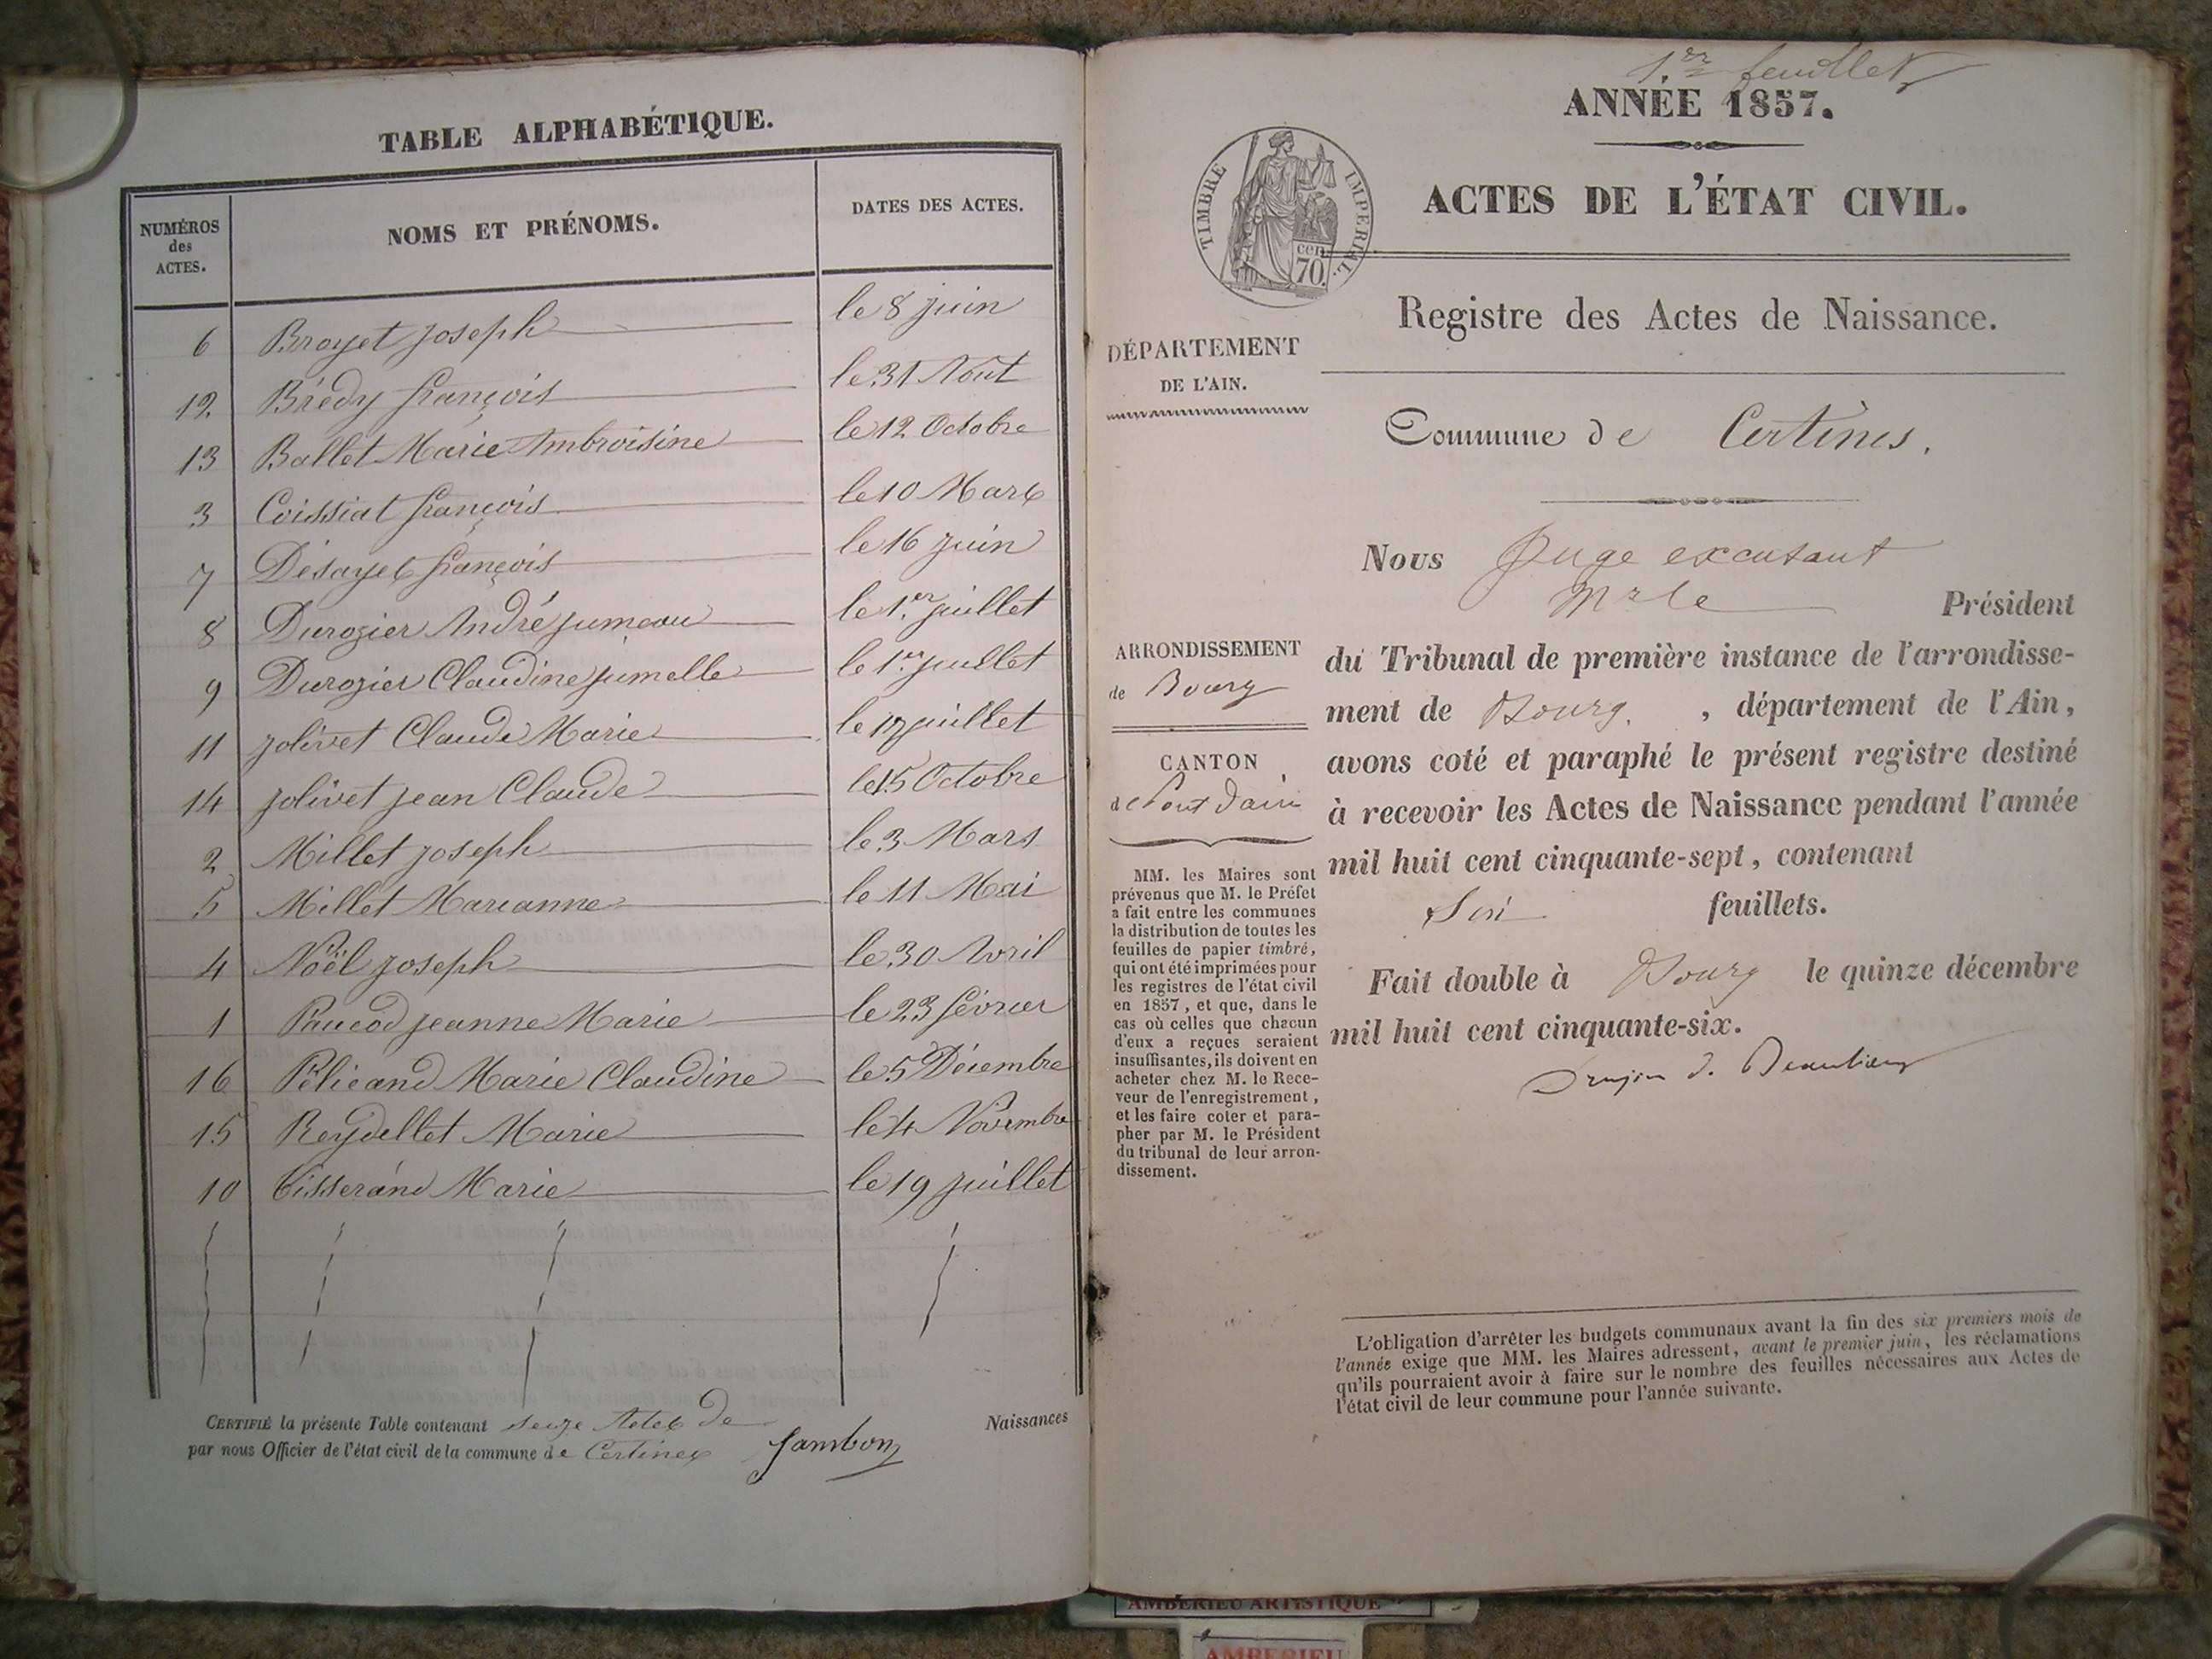 TABLE ALPHABÉTIQUE.
NUMÉROS
des
ACTES.
NOMS ET PRÉNOMS.
DATES DES ACTES.
6 Broyet joseph le 8 juin
12 Brédy françois le 31 Aout
13 Ballet Marie Ambroisine le 12 Octobre
3 Coissiat françois le 10 Mars
7 Désayes françois le 16 juin
8 Durozier André jumeau le 1.er juillet
9 Durozier Claudine jumelle le 1.er juillet
11 jolivet Claude Marie le juillet
14 jolivet jean Claude le 15 Octobre
2 Millet joseph le 3 Mars
5 Millet Marianne le 11 Mai
4 Noël joseph le 30 Avril
1 Paucod jeanne Marie le 23 février
16 Pélicand Marie Claudine le 5 Décembre
15 Reydellet Marie le 4 Novembre
10 Tisserand Marie le 19 juillet
CERTIFIÉ la présente Table contenant seize Actes de Naissances
par nous Officier de l'état civil de la commune de Certines Jambon
1er feuillet
ANNÉE 1857.
TIMBRE IMPERIAL.
cen
70.
ACTES DE L'ÉTAT CIVIL.
Registre des Actes de Naissance.
DÉPARTEMENT
DE L'AIN.
Commune de Certines.
Nous Juge excusant
Mr le Président
ARRONDISSEMENT
de Bourg
CANTON
de Pont d'ain
du Tribunal de première instance de l'arrondisse-
ment de Bourg. , département de l'Ain,
avons coté et paraphé le présent registre destiné
à recevoir les Actes de Naissance pendant l'année
mil huit cent cinquante-sept, contenant
Six feuillets.
Fait double à Bourg le quinze décembre
mil huit cent cinquante-six.
MM. les Maires sont
prévenus que M. le Préfet
a fait entre les communes
la distribution de toutes les
feuilles de papier timbré,
qui ont été imprimées pour
les registres de l'état civil
en 1857, et que, dans le
cas où celles que chacun
d'eux a reçues seraient
insuffisantes, ils doivent en
acheter chez M. le Rece-
veur de l'enregistrement,
et les faire coter et para-
pher par M. le Président
du tribunal de leur arron-
dissement.
L'obligation d'arrêter les budgets communaux avant la fin des six premiers mois de
l'année exige que MM. les Maires adressent, avant le premier juin, les réclamations
qu'ils pourraient avoir à faire sur le nombre des feuilles nécessaires aux Actes de
l'état civil de leur commune pour l'année suivante.
AMBERIEU ARTISTIQUE
AMBERIEU